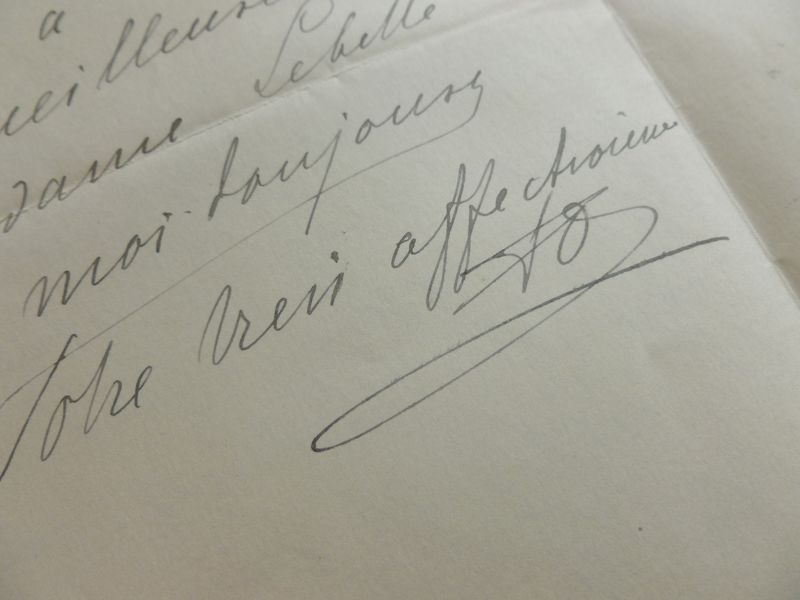 à
ueilleuse
dame Lebelle
moi toujours
Votre très affectionné